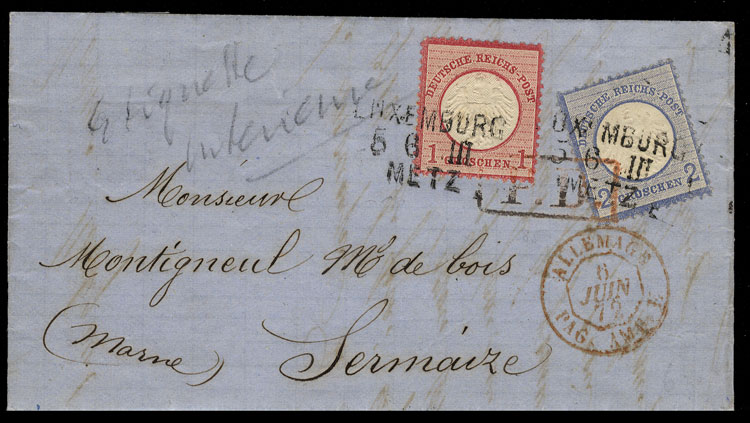 DEUTSCHE REICHS-POST
1 GROSCHEN 1
DEUTSCHE REICHS-POST
2 GROSCHEN 2
LUXEMBURG
5 6 III
METZ
UXEMBURG
5 6 III
METZ
P.D.
Monsieur
Montigneul Md de bois
(Marne) Sermaize
ALLEMAGE
6
JUIN
72
PAG. AMB. E.